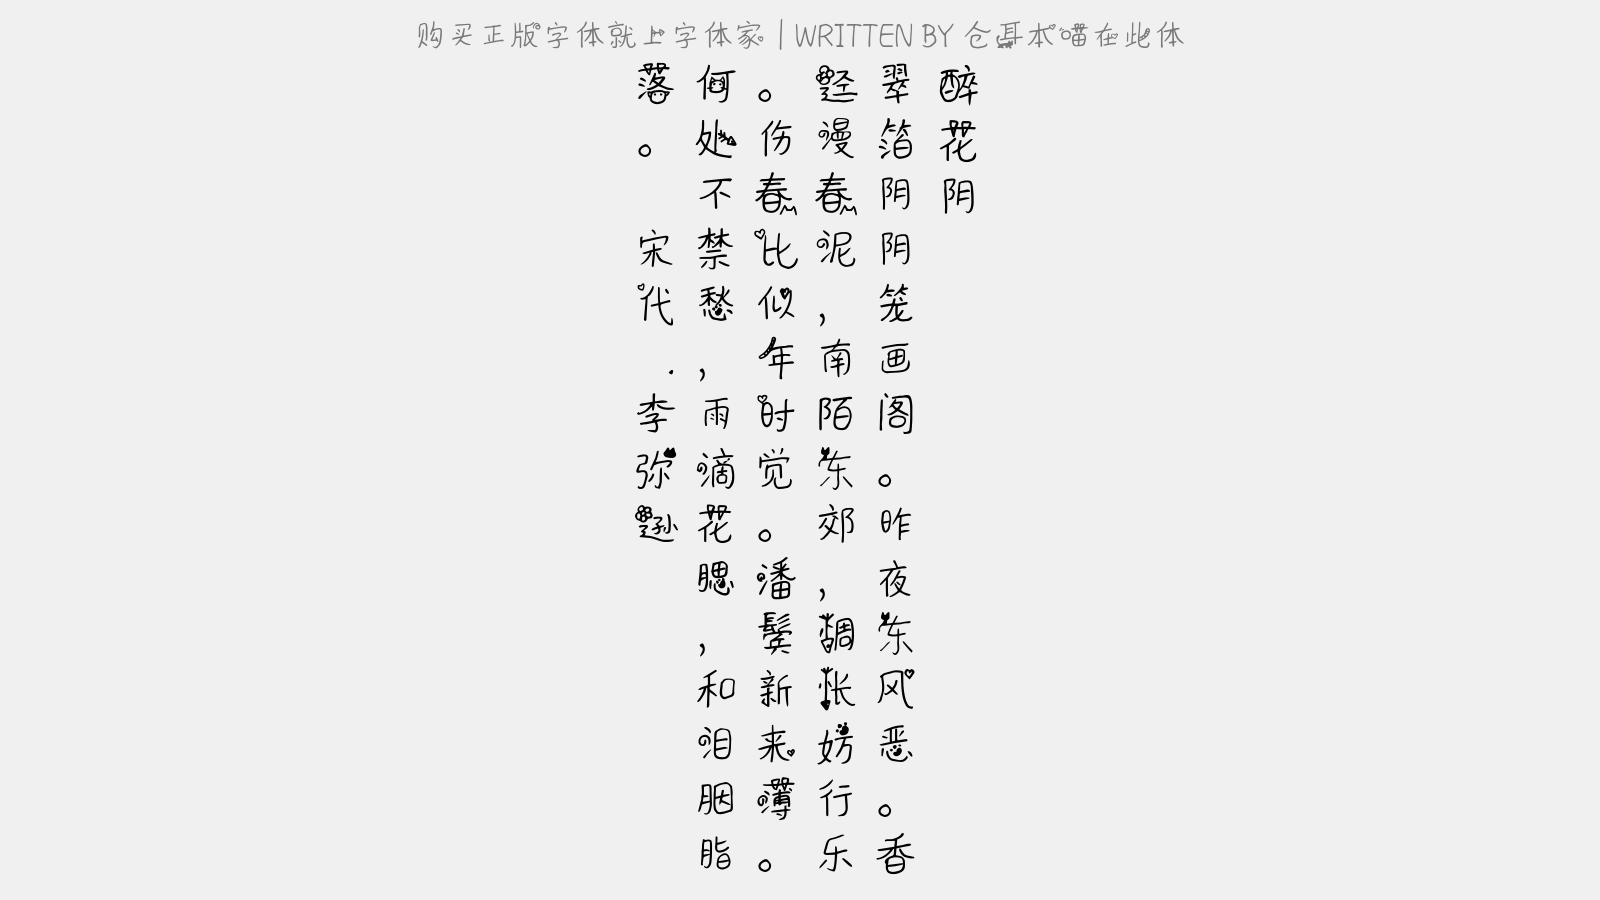 购买正版字体就上字体家 | WRITTEN BY 仓耳本喵在此体
醉花阴
翠箔阴阴笼画阁。昨夜东风恶。香
迳漫春泥，南陌东郊，惆怅妨行乐
。伤春比似年时觉。潘鬓新来薄。
何处不禁愁，雨滴花腮，和泪胭脂
落。 宋代·李弥逊